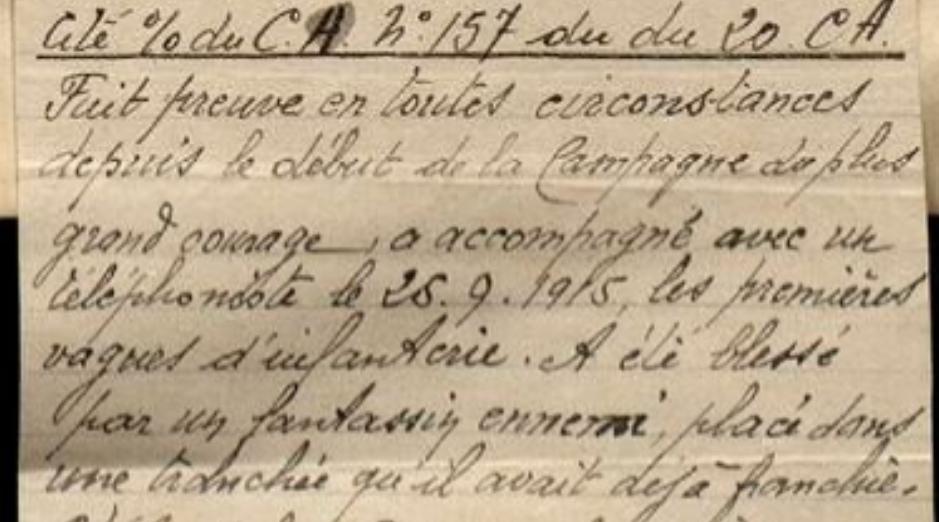 Cité % du C.A. N°. 157 du du 20 C A.
Fait preuve en toutes circonstances
depuis le début de la Campagne du plus
grand courage, a accompagné avec un
téléphoniste le 25.9.1915, les premières
vagues d'infanterie. A été blessé
par un fantassin ennemi, placé dans
une tranchée qu'il avait déjà franchie.